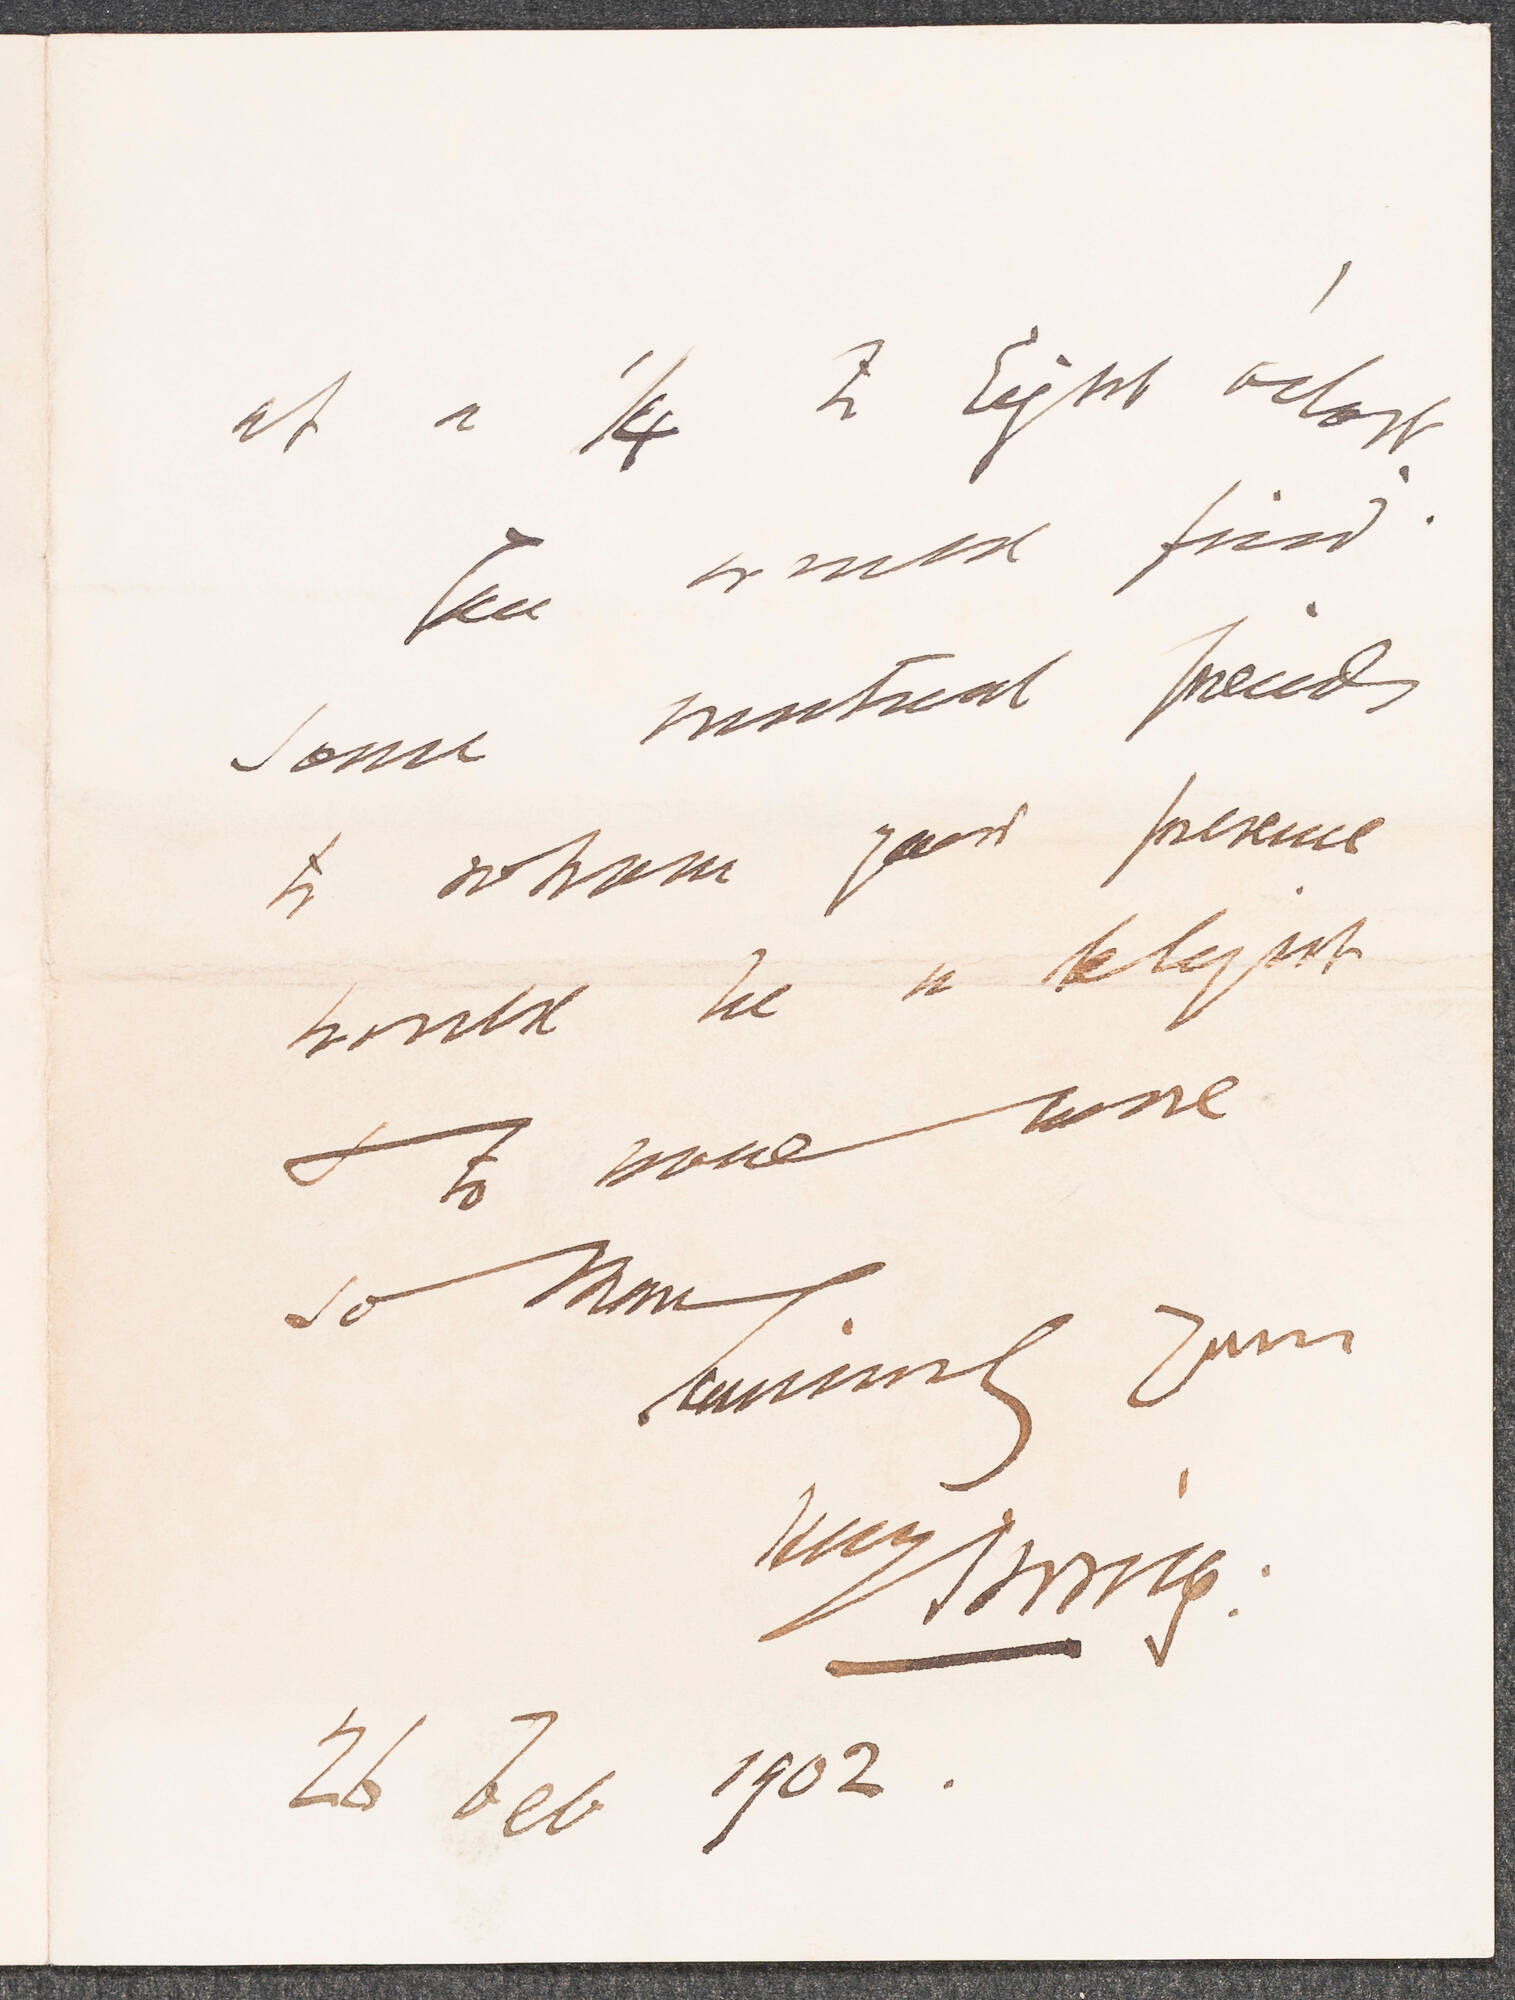 at a 1/4 to Eight o'clock
You would find
some mutual friends
to whom your presence
would be a delight
& to none more
so than
Sincerely Yours
Henry Irving:
26 Feb 1902.